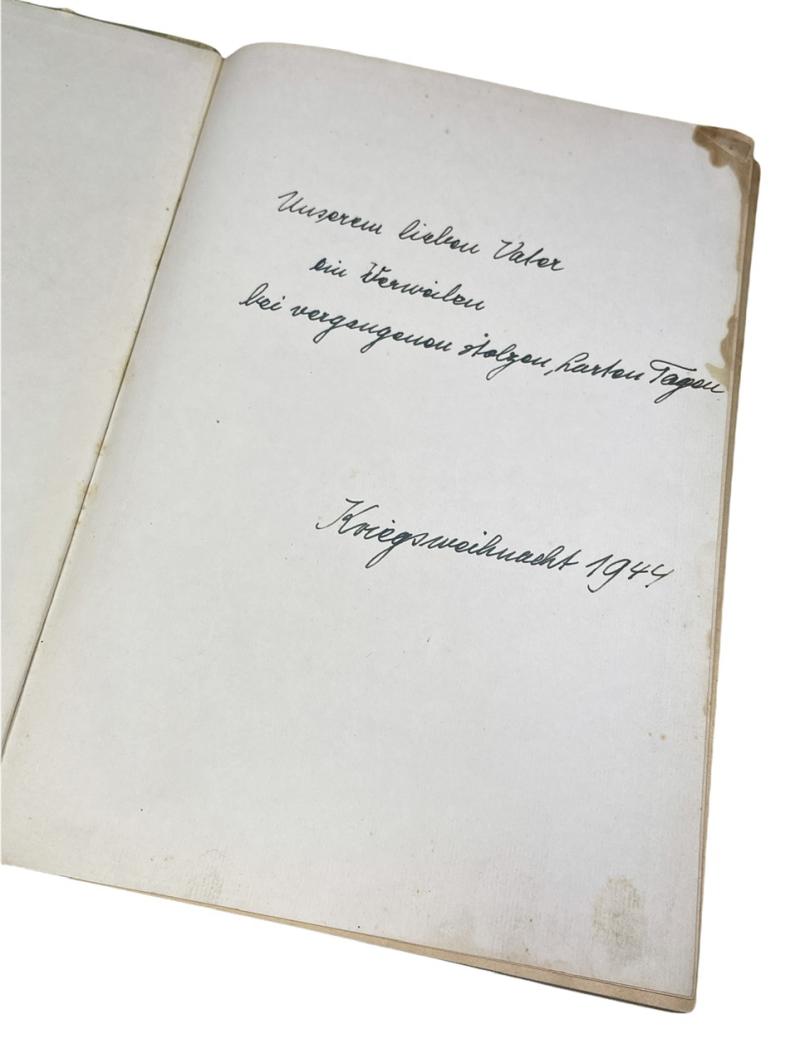 Unserem lieben Vater
ein Verweilen
bei vergangenen stolzen, harten Tagen
Kriegsweihnacht 1944